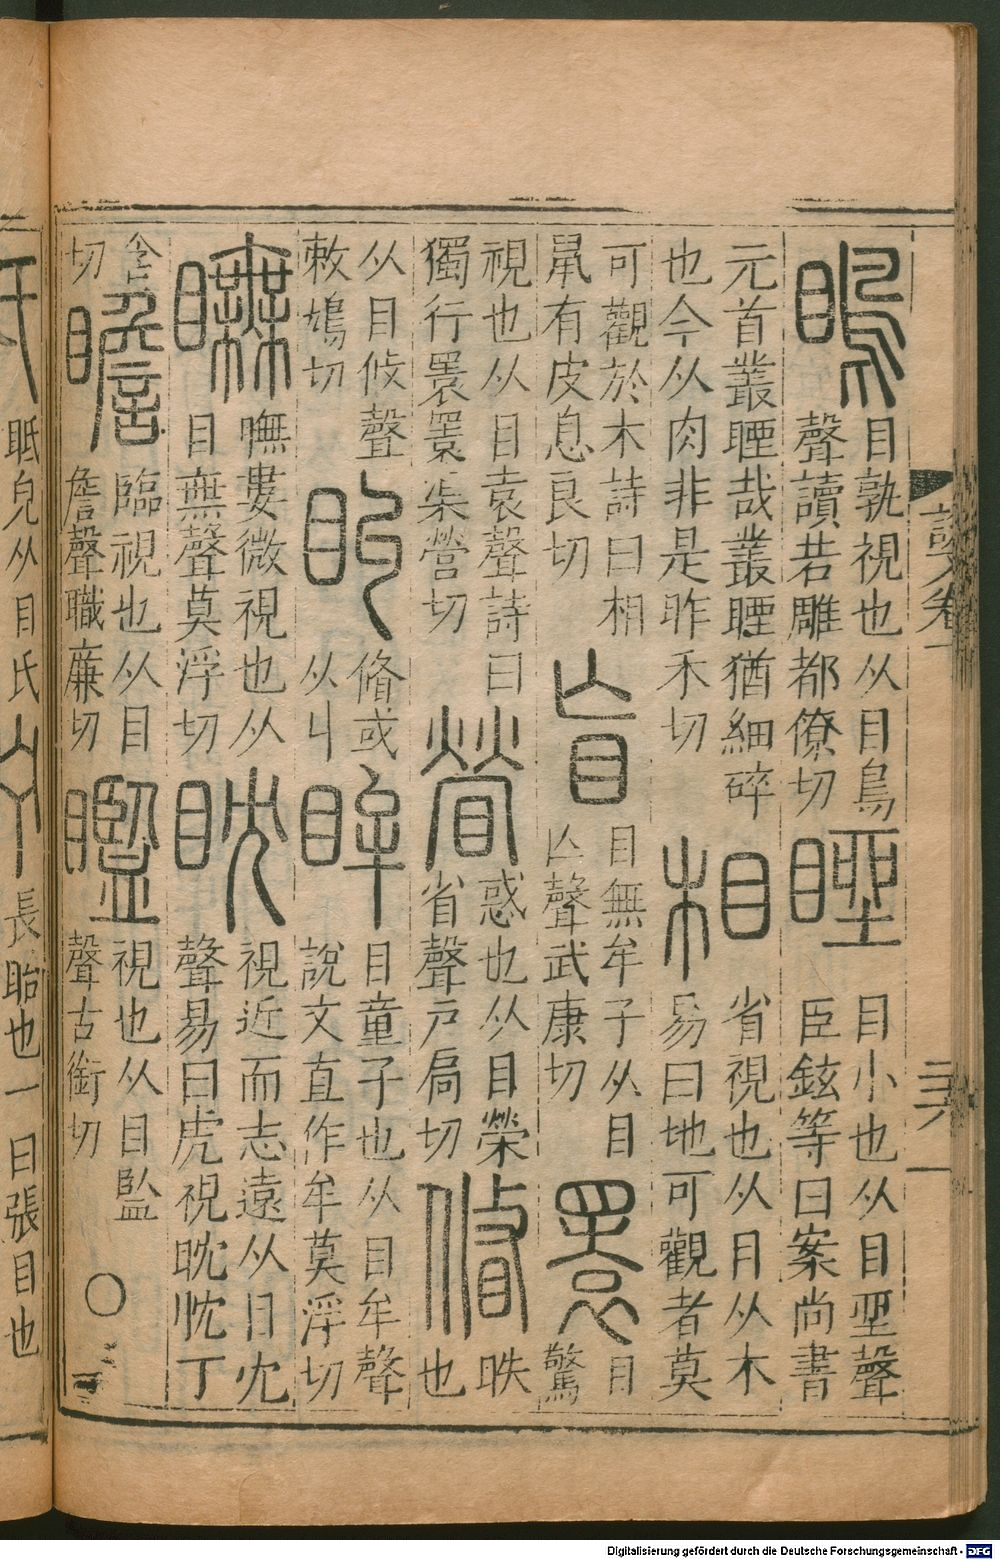 說文卷二
三十六
瞗 目孰視也从目鳥
聲讀若雕都僚切
睉 目小也从目坐聲
臣鉉等曰案尚書
元首叢睉哉叢睉猶細碎
也今从肉非是昨禾切
相 省視也从目从木
易曰地可觀者莫
可觀於木詩曰相
鼠有皮息良切
盲 目無牟子从目
亾聲武康切
瞏 目
驚
視也从目袁聲詩曰
獨行瞏瞏渠營切
䁝 惑也从目榮
省聲戸扃切
䀺 眣
也
从目攸聲
敕鳩切
脩或
从丩
眸 目童子也从目牟聲
說文直作牟莫浮切
瞴 瞴婁微視也从
目無聲莫浮切
眈 視近而志遠从目冘
聲易曰虎視眈眈丁
含
切
瞻 臨視也从目
詹聲職廉切
𥌈 視也从目監
聲古銜切
眂皃从目氏
長眙也一曰張目也
Digitalisierung gefördert durch die Deutsche Forschungsgemeinschaft - DFG